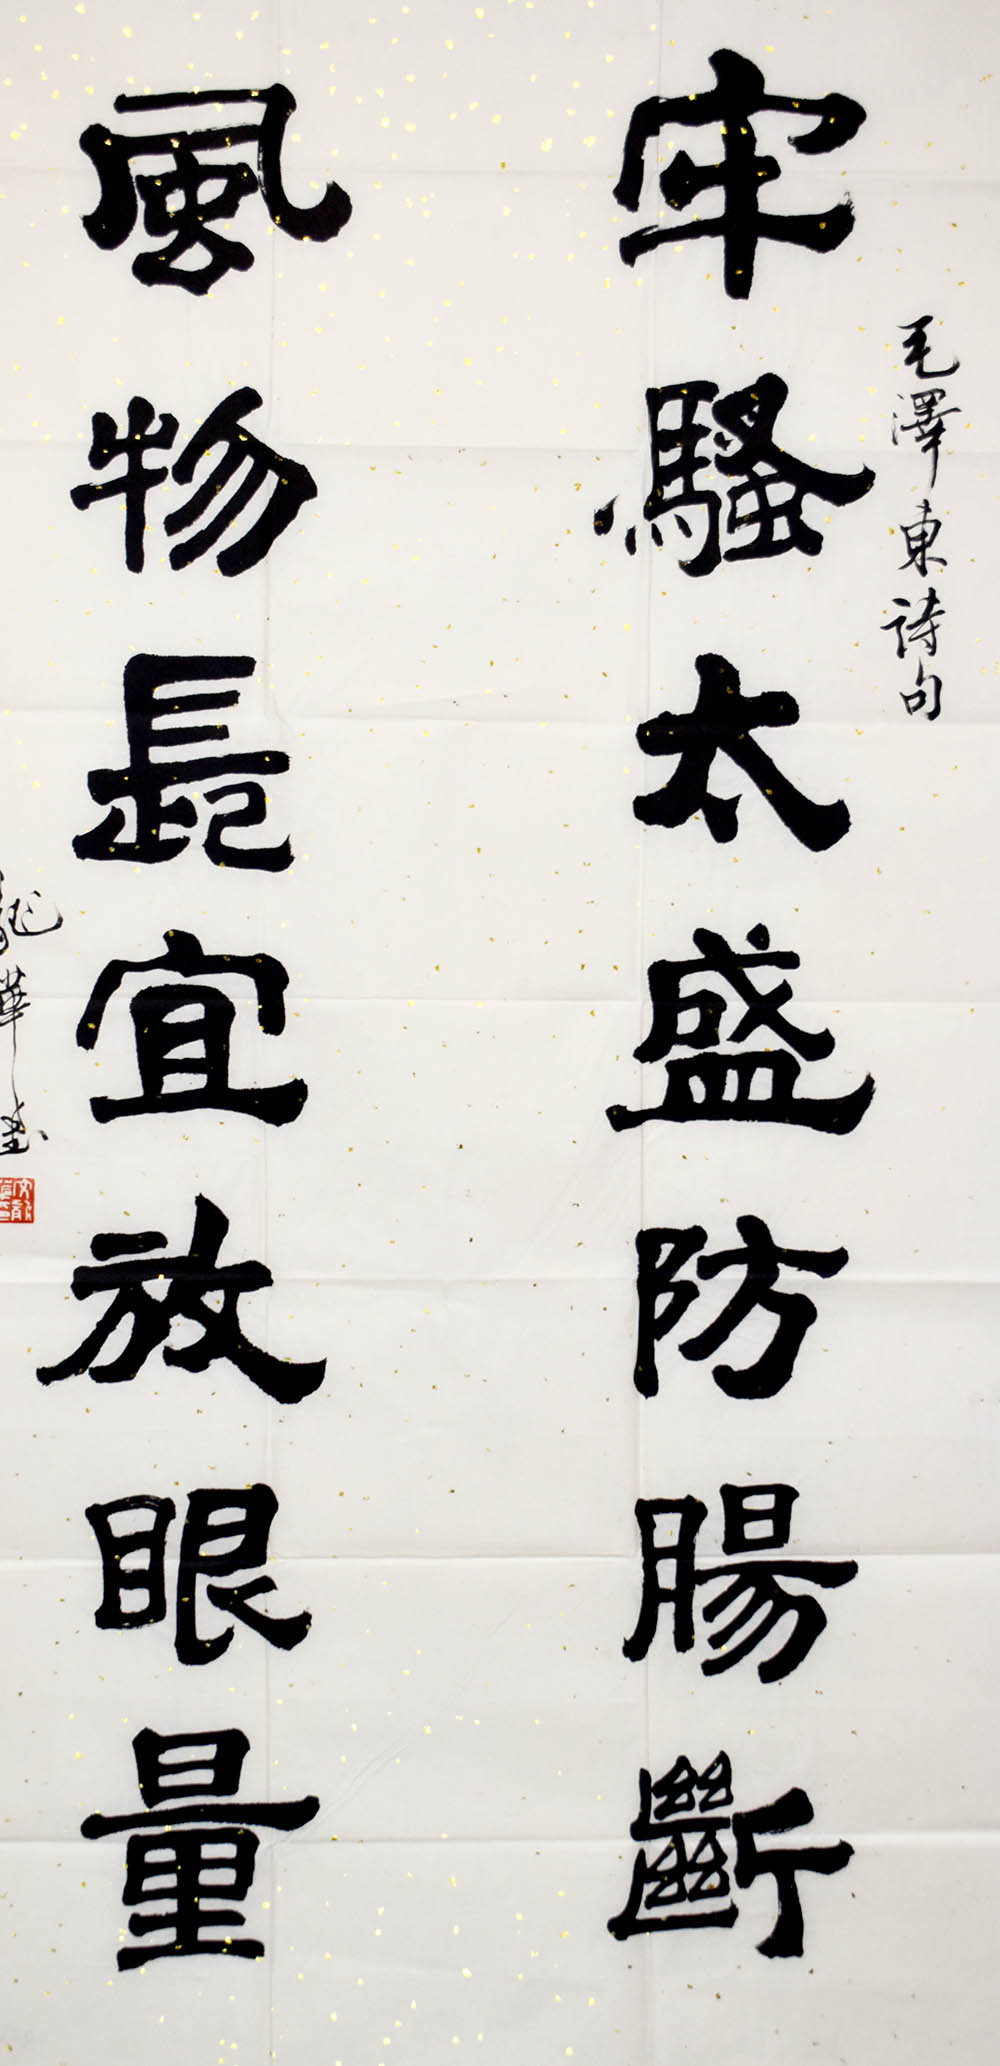 毛澤東詩句
牢騷太盛防腸斷
風物長宜放眼量
華書